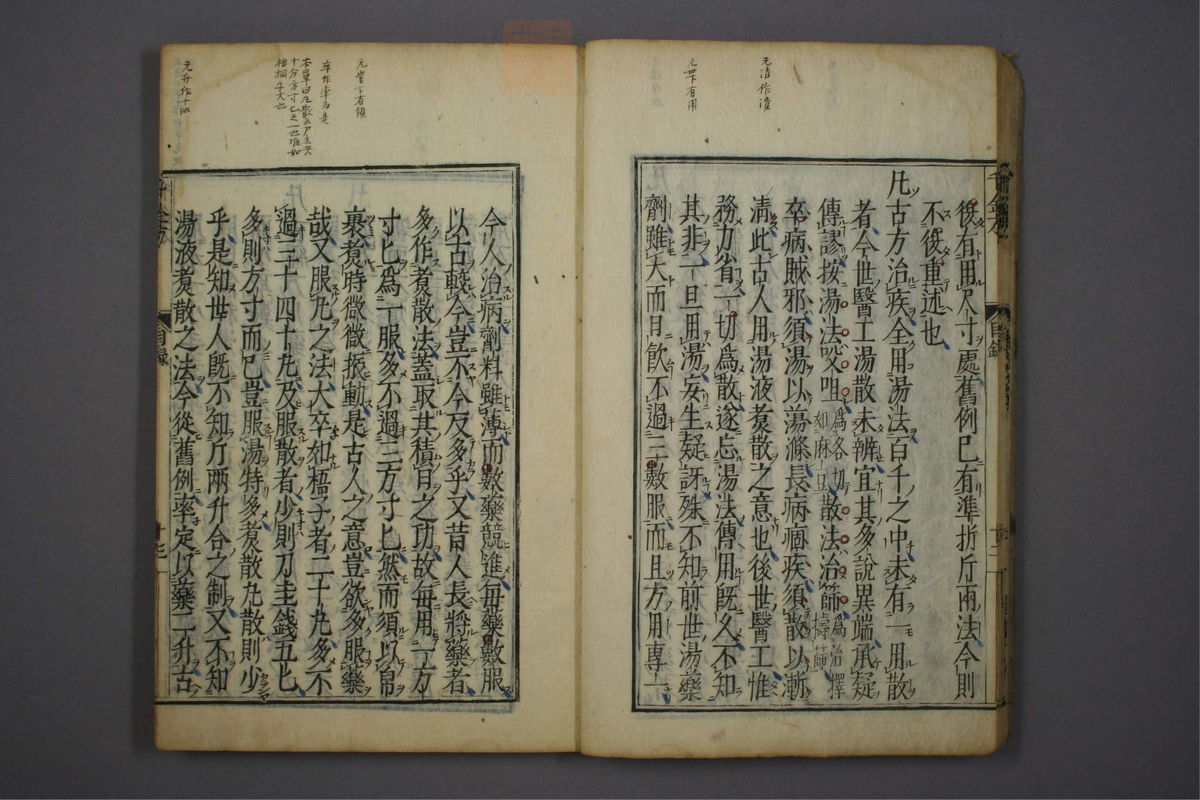 後有田尺寸處舊例已有準折斤兩法今則
不復重述也
凡古方治疾全用湯法百千之中未有一用散
者今世醫工湯散未辨宜其多說異端承疑
傳謬按湯法㕮咀為各切如麻豆散法治篩為治擇擣篩
卒病賊邪須湯以蕩滌長病痼疾須散以漸
清此古人用湯液煮散之意也後世醫工惟
務力省一切為散遂忘湯法傳用既久不知
其非一旦用湯妄生疑訝殊不知前世湯藥
劑雖大而日飲不過三數服而且方用專一
今人治病劑料雖薄而數藥競進每藥數服
以古較今豈不今反多乎又昔人長將藥者
多作煮散法蓋取其積日之功故每用一方
寸匕為一服多不過三方寸匕然而須以帛
裹煮時微微振動是古人之意豈欲多服藥
哉又服丸之法大卒如梧子者二十丸多不
過三十四十丸及服散者少則刀圭錢五匕
多則方寸而已豈服湯特多煮散丸散則少
乎是知世人既不知斤兩升合之制又不知
湯液煮散之法今從舊例率定以藥二升古
元清作漬
元世下有用
元豈下有須
卒作率為是
千金方
目錄
目錄